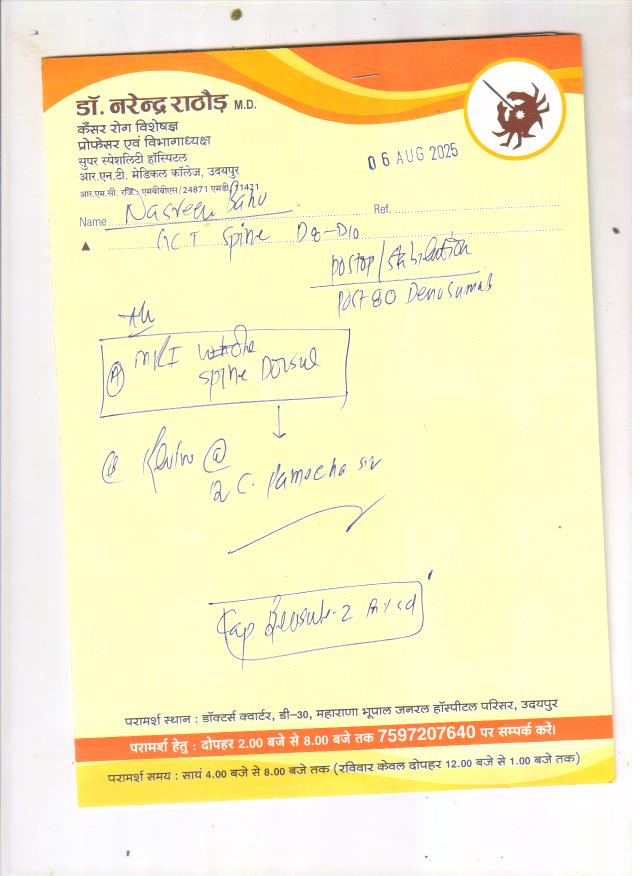 डॉ. नरेन्द्र राठौड़ M.D.
कैंसर रोग विशेषज्ञ
प्रोफेसर एवं विभागाध्यक्ष
सुपर स्पेशलिटी हॉस्पिटल
आर.एन.टी. मेडिकल कॉलेज, उदयपुर
आर.एम.सी. रजि.: एमबीबीएस/24871 एमडी/
06 AUG 2025
Name Nasreen Banu Ref.
GCT Spine D8-D10
Postop/Stabilization
Post 80 Denosumab
A MRI whole
Spine Dorsal
B Review @
Cap 2
परामर्श स्थान : डॉक्टर्स क्वार्टर, डी-30, महाराणा भूपाल जनरल हॉस्पीटल परिसर, उदयपुर
परामर्श हेतु : दोपहर 2.00 बजे से 8.00 बजे तक 7597207640 पर सम्पर्क करें।
परामर्श समय : सायं 4.00 बजे से 8.00 बजे तक (रविवार केवल दोपहर 12.00 बजे से 1.00 बजे तक)